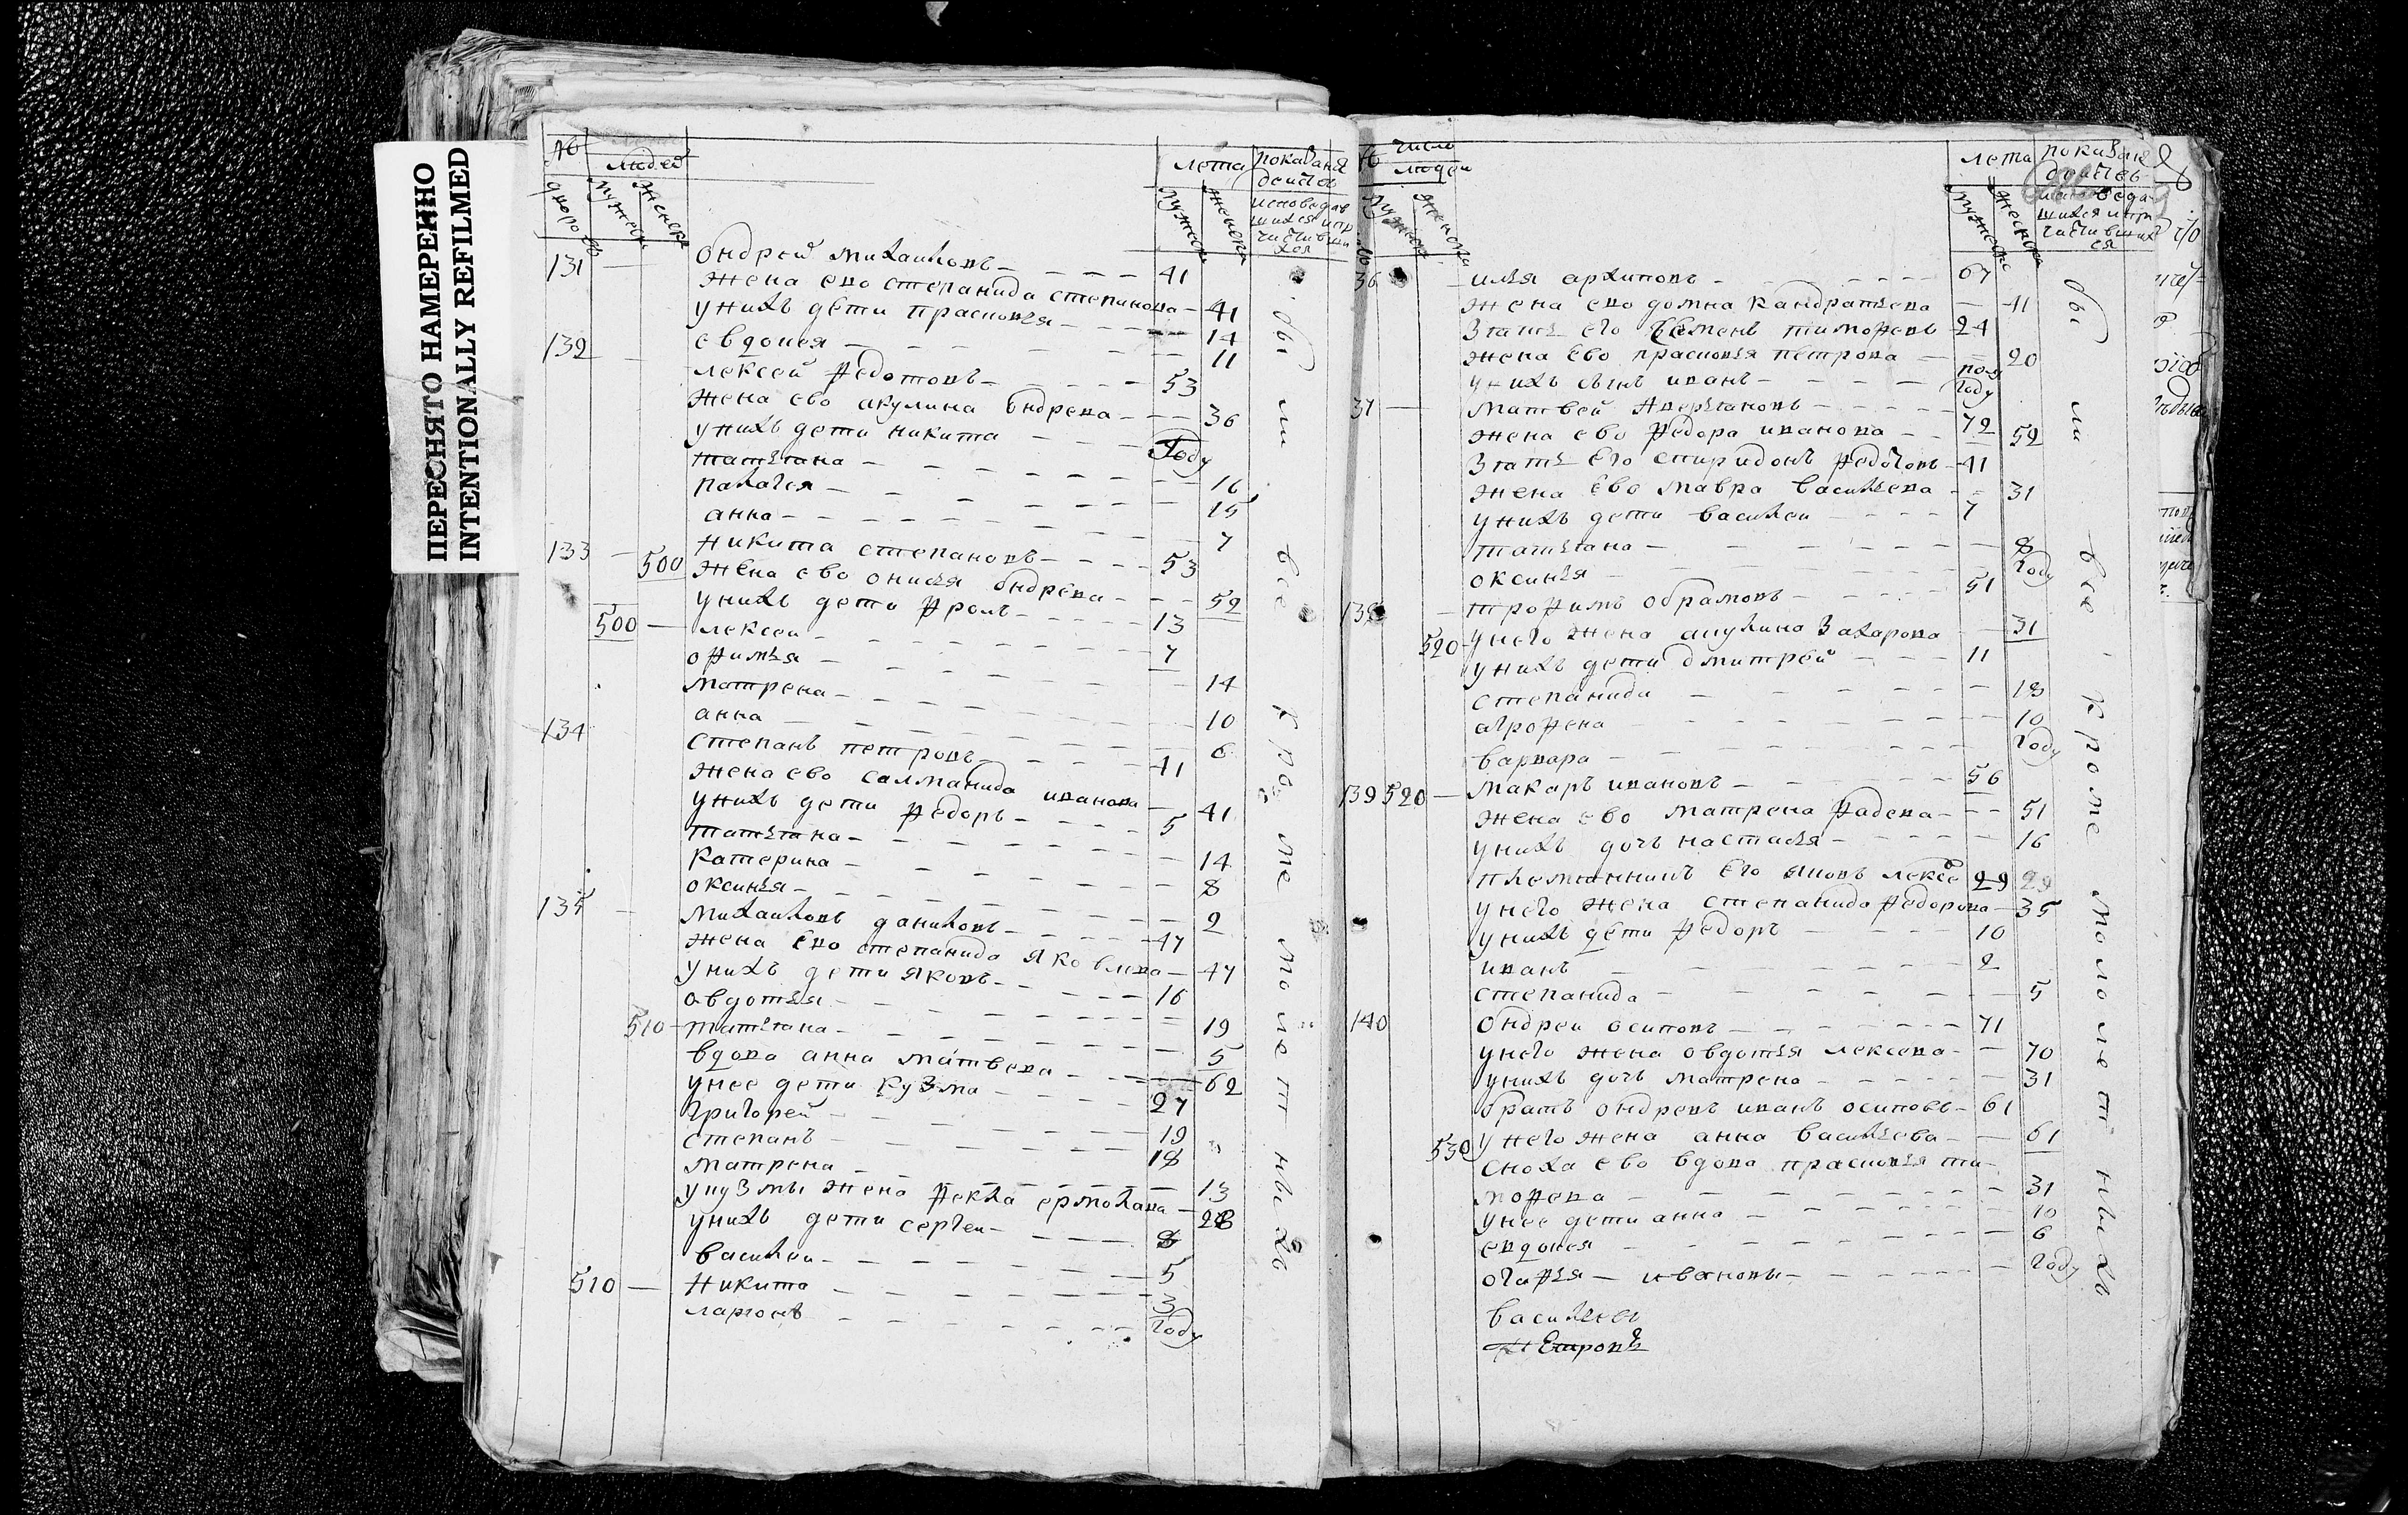 ПЕРЕСНЯТО НАМЕРЕННО
INTENTIONALLY REFILMED
№ людеи лета показания
дворовъ мужеск женска мужеск женска исповедав шихся и при чистивши хся
131 — Ондреи михаиловъ — 41
жена ево степанида степанова — 41
у нихъ дети прасковья — 14
евдокея — 11
132 — лексеи федотовъ — 53
жена ево акулина ондрева — 36
у нихъ дети никита — году
татьяна — 16
палагея — 15
анна — 7
133 — никита степановъ — 53
500 жена ево онисья ондрева — 52
у нихъ дети фролъ — 13
500 — лексеи — 7
офимья — 14
матрена — 10
анна — 6
134 степанъ петровъ — 41
жена ево салманида иванова — 41
у нихъ дети федоръ — 5
татьяна — 14
катерина — 8
оксинья — 2
135 — михаиловъ даниловъ — 47
жена ево степанида яковлева — 47
у нихъ дети яковъ — 16
овдотья — 19
510 — татьяна — 5
вдова анна матвева — 62
у нее дети кузма — 27
григореи — 19
степанъ — 18
матрена — 13
у кузмы жена фекла ермолава — 28
у нихъ дети сергеи — 8
василеи — 5
510 — никита — 3
ларионъ — году
были все кроме мололетныхъ
число людеи лета показания
мужеск женска мужеск женска исповеда шихся и при чистивших ся
36 — илья архиповъ — 67
жена ево домна кандратьева — 41
зять его семенъ тимофевъ — 24
жена ево прасковья петрова — 20
у нихъ сынъ иванъ — полу году
37 — матвеи аверьяновъ — 72
жена ево федора иванова — 52
зять его спиридонъ федотовъ — 41
жена ево мавра васильева — 31
у нихъ дети василеи — 7
татьяна — 8
оксинья — году
138 — трофимъ обрамовъ — 51
520 — у него жена акулина захарова — 31
у нихъ дети дмитреи — 11
степанида — 18
агрофена — 10
варвара — году
139 520 — макаръ ивановъ — 56
жена ево матрена фадева — 51
у нихъ дочь настасья — 16
племянникъ его яковъ лексе — 29 29
у него жена степанида федорова — 35
у нихъ дети федоръ — 10
иванъ — 2
степанида — 5
140 Ондреи осиповъ — 71
у него жена овдотья лексева — 70
у нихъ дочь матрена — 31
братъ ондревъ иванъ осиповъ — 61
530 у него жена анна васильева — 61
сноха ево вдова прасковья ти
мофева — 31
у нее дети анна — 10
евдокея — 6
огафья — ивановы — году
васильевъ
петровъ
были все кроме мололетныхъ